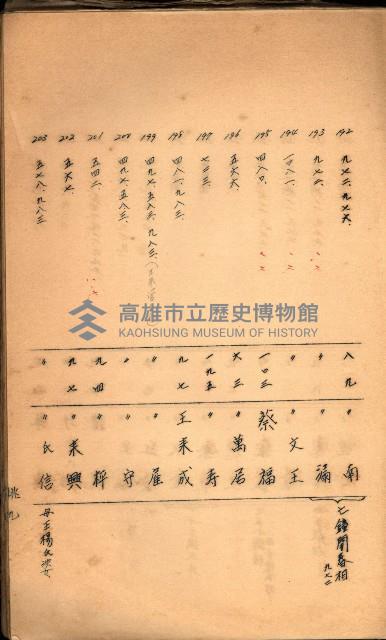 192 九七二、九七六、 八九 〃 南
193 九七二、 〃 〃 滿
194 一八一、 〃 文王
195 四八〇、 一〇三 蔡 福
196 五六六、 六三 〃 萬居
197 七三三、 一九五 〃 寿
198 四八一、九八三、 九七 王来成
199 四九七、五八三、九八三、 〃 〃 雇
200 四九七、五八三、 〃 〃 守
201 五四二、 九四 〃 粹
202 五六七、 九七 〃 来興
203 五七八、九八三 〃 〃 氏信
七鐘開春相
九七二
母王楊氏次女
高雄市立歷史博物館
KAOHSIUNG MUSEUM OF HISTORY